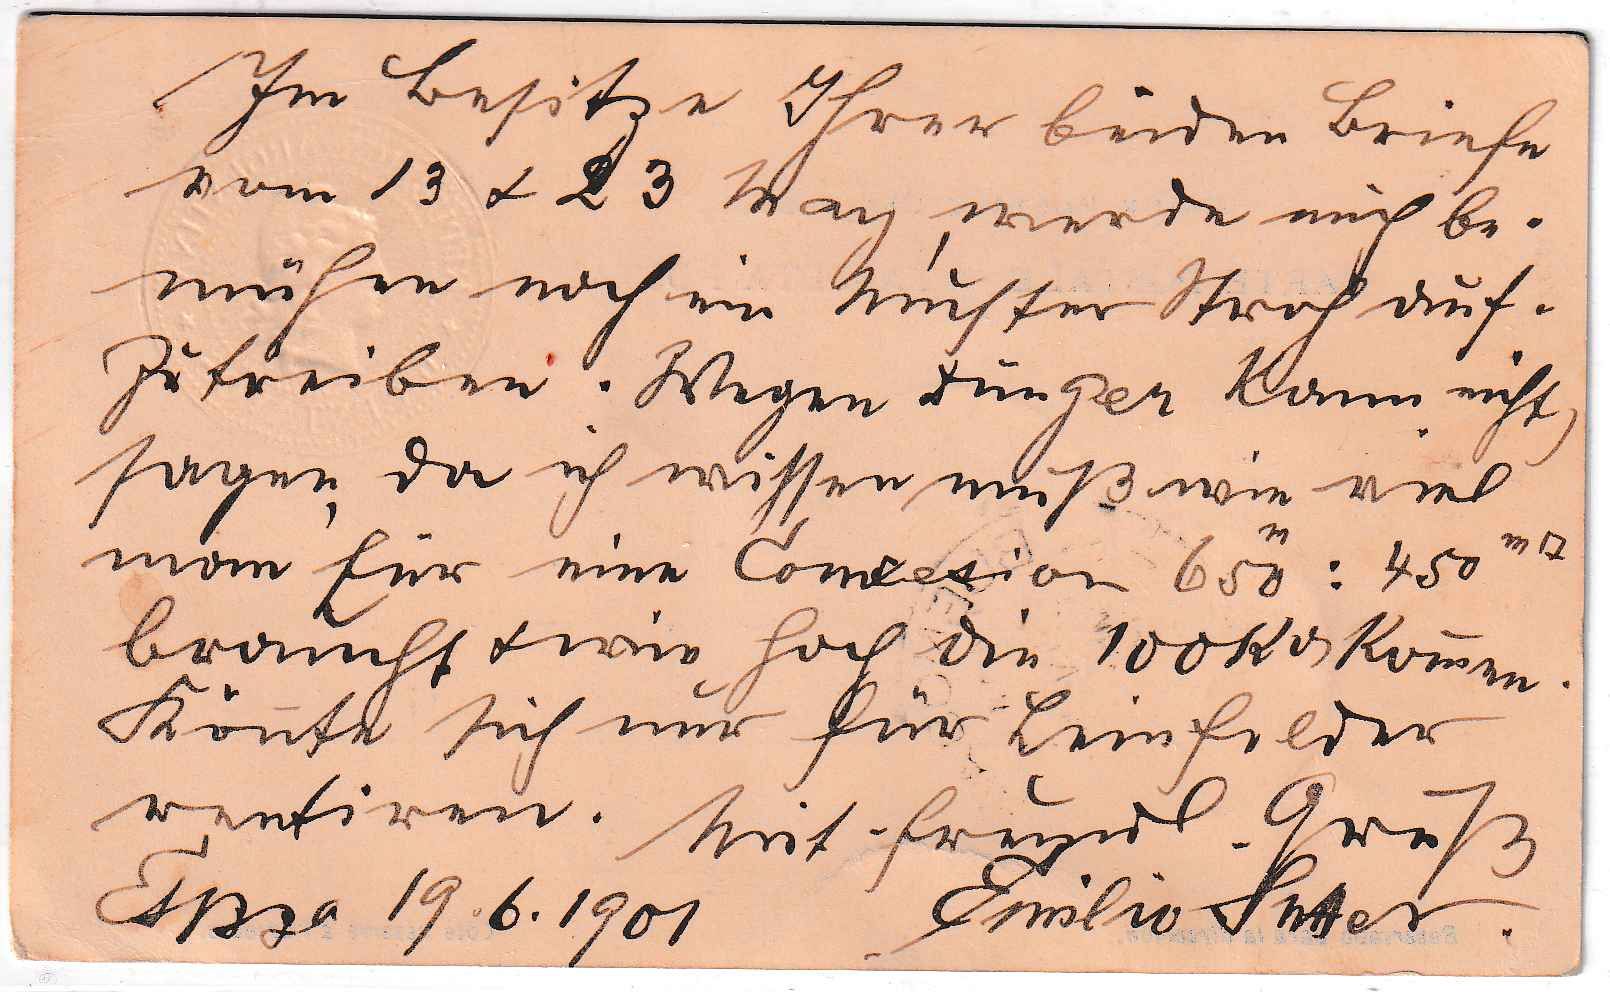 Im Besitze Ihrer beiden Briefe
vom 13 & 23 May, werde mich be-
mühen noch ein Muster Stroh auf-
zutreiben. Wegen Dünger kann nicht
sagen, da ich wissen muß wie viel
man für eine 650 m : 450 m□
braucht & wie hoch die 100 Ko kommen.
Könnte sich nur für Leinfelder
rentiren. Mit freundl. Gruß
19.6.1901 Emilio Sutter.